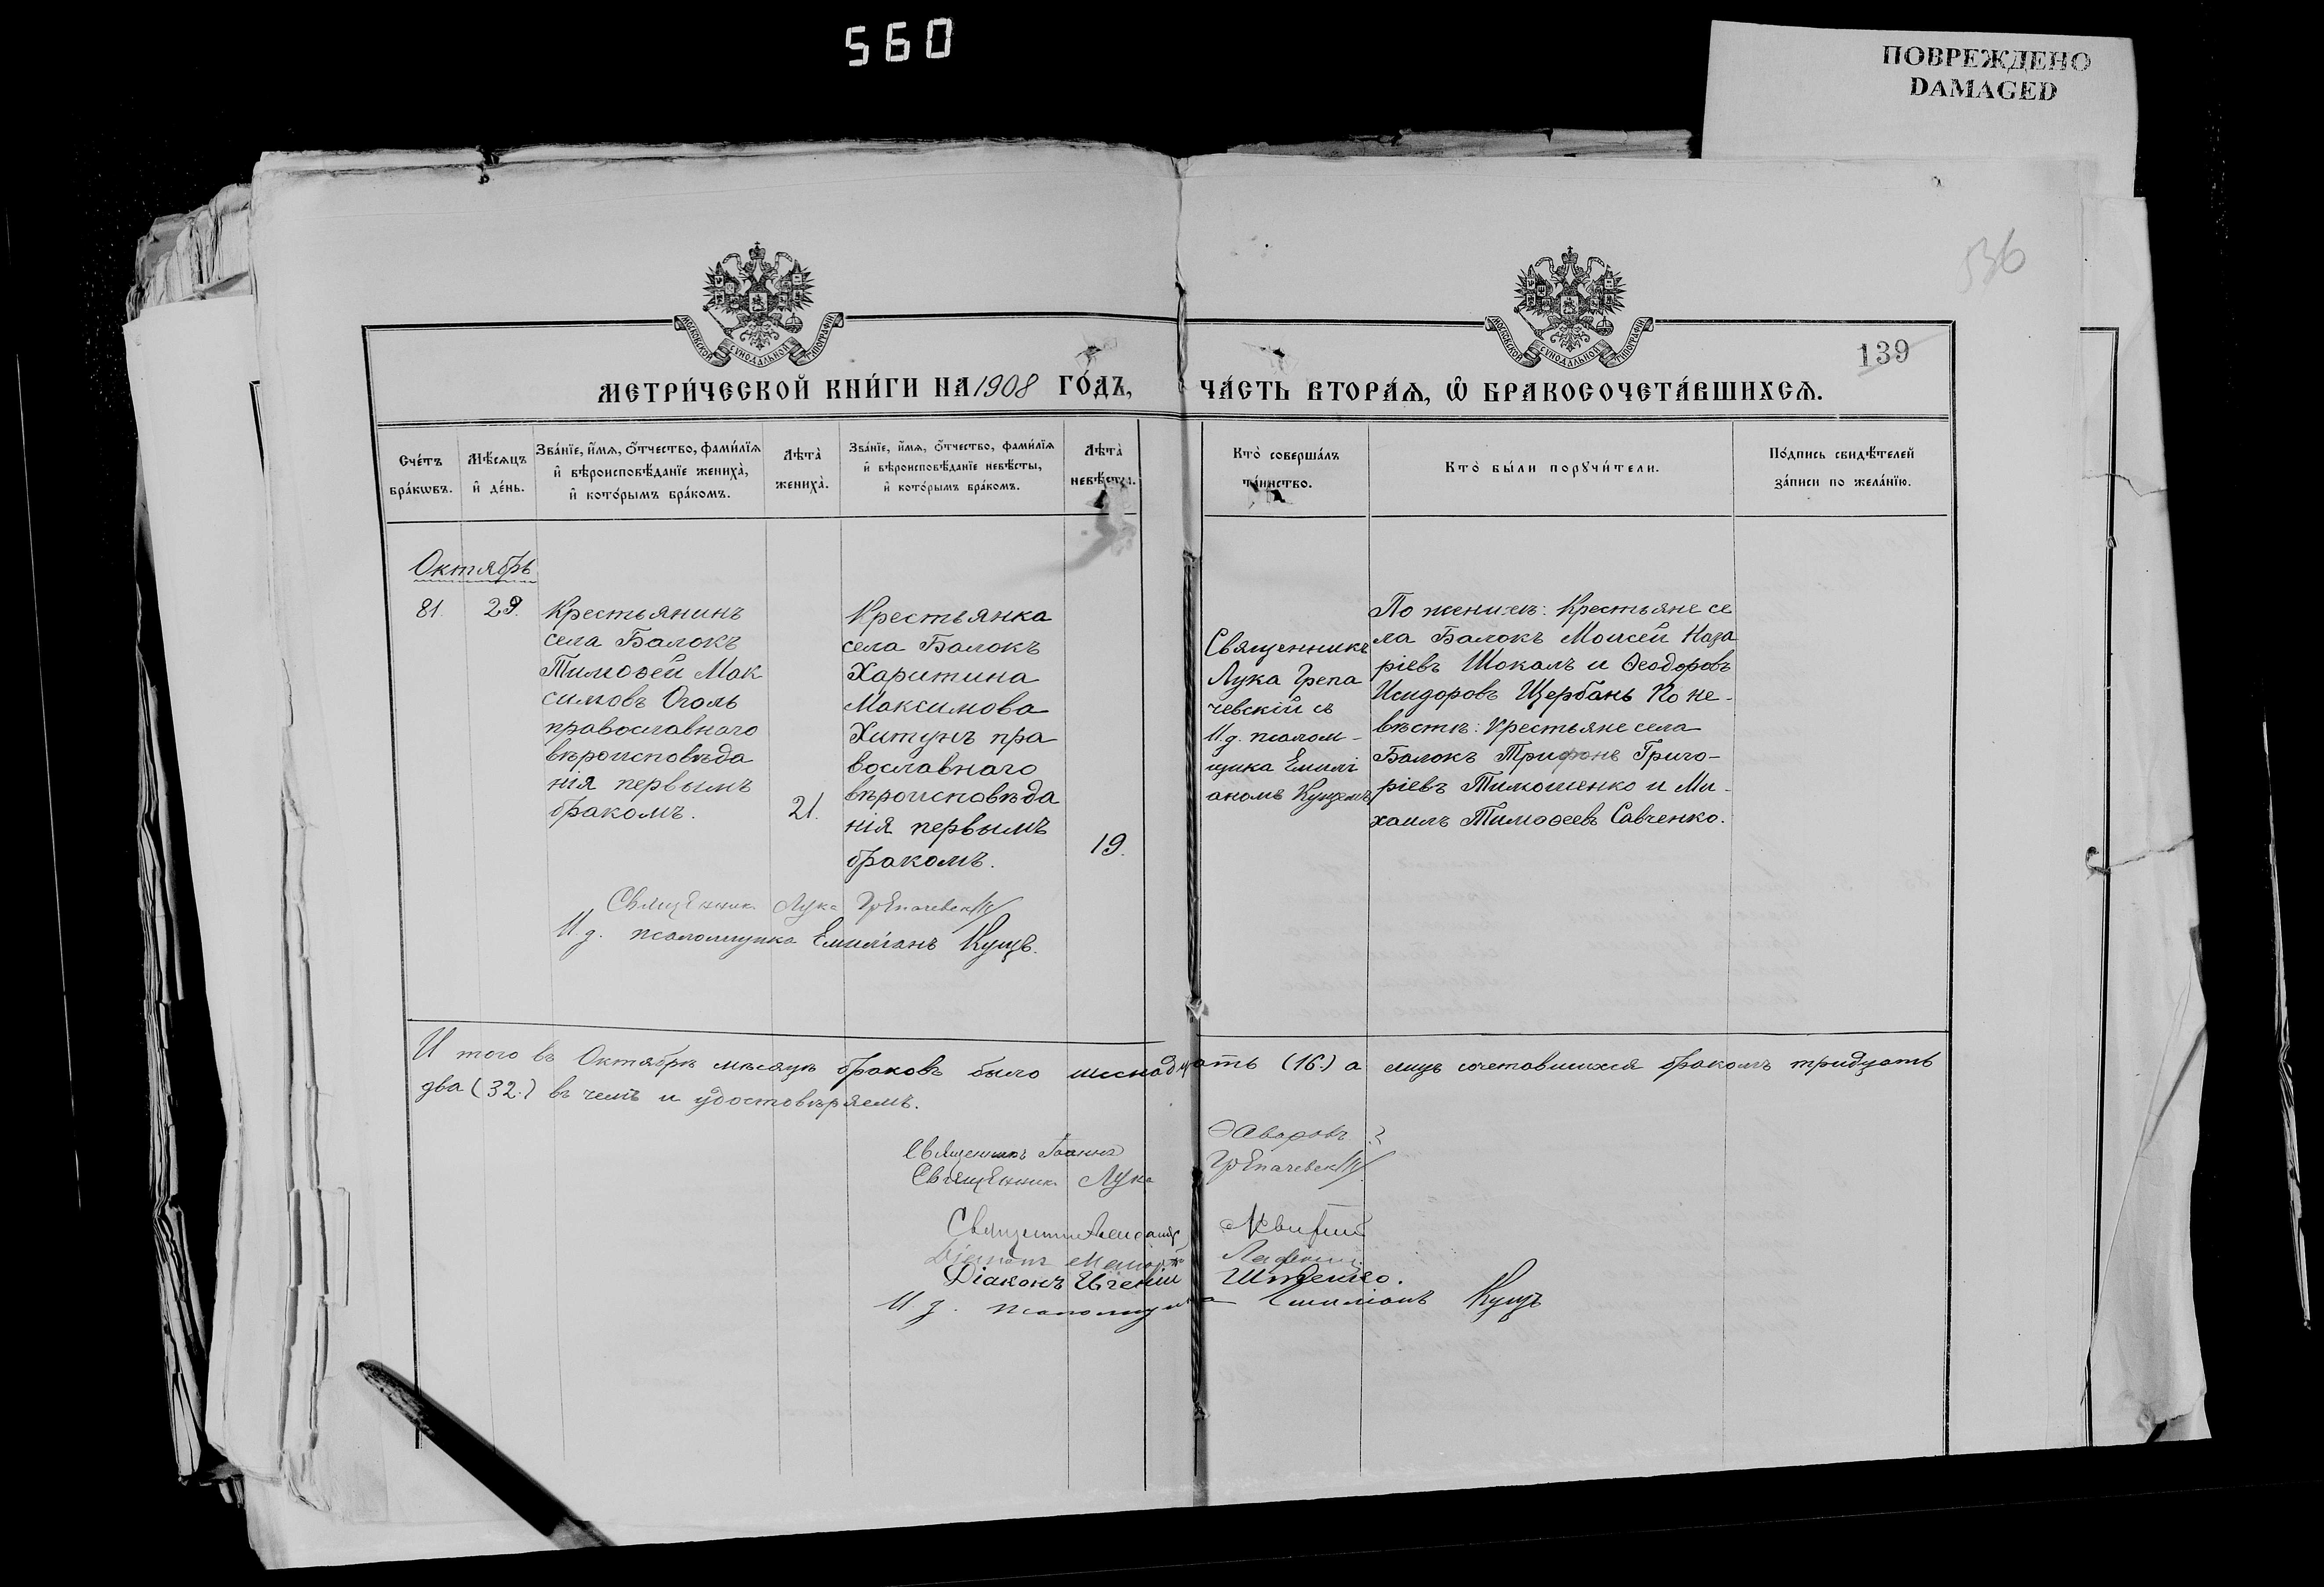 560
ПОВРЕЖДЕНО
DAMAGED
536
139
МОСКОВСКОЙ СѴНОДАЛЬНОЙ ТИПОГРАФІИ
МОСКОВСКОЙ СѴНОДАЛЬНОЙ ТИПОГРАФІИ
МЕТРИ́ЧЕСКОЙ КНИ́ГИ НА 1908 ГО́ДЪ,
ЧА́СТЬ ВТОРА́Ѧ, Ѽ БРАКОСОЧЕТА́ВШИХСѦ.
Сче́тъ
бра́кѡвъ.
Мѣ́сѧцъ
и҆ де́нь.
Зва́нїе, и҆́мѧ, ѻ҆́тчество, фами́лїѧ
и҆ вѣроисповѣ́данїе жениха̀,
и҆ кото́рымъ бра́комъ.
Лѣта̀
жениха̀.
Зва́нїе, и҆́мѧ, ѻ҆́тчество, фами́лїѧ
и҆ вѣроисповѣ́данїе невѣ́сты,
и҆ кото́рымъ бра́комъ.
Лѣта̀
невѣ́сты.
Кто̀ соверша́лъ
та́инство.
Кто̀ бы́ли порꙋчи́тели.
По́дпись свидѣ́телей
за́писи по жела́нїю.
Октябрь
81.
29.
Крестьянинъ
села Балокъ
Тимоѳей Мак
симовъ Оголь
православнаго
вѣроисповѣда
нія первымъ
бракомъ.
21.
Крестьянка
села Балокъ
Харитина
Максимова
Хитунъ пра
вославнаго
вѣроисповѣда
нія первымъ
бракомъ.
19.
Священникъ
Лука Грепа
чевскій съ
И. д. псалом-
щика Емилі
аномъ Кущемъ
По женихѣ: Крестьяне се
ла Балокъ Моисей Наза
ріевъ Шокалъ и Ѳеодоровъ
Исидоровъ Щербань По не-
вѣстѣ: Крестьяне села
Балокъ Трифонъ Григо-
ріевъ Тимошенко и Ми-
хаилъ Тимоѳеевъ Савченко.
Священник Лука Грепачевскій
И. д. псаломщика Емиліанъ Кущъ.
И того въ Октябрѣ мѣсяцѣ браковъ было шеснадцать (16.) а лицъ сочетавшихся бракомъ тридцать
два (32.) въ чемъ и удостовѣряемъ.
Священникъ Іоаннъ
Священник Лука Грепачевскій
Священникъ Александръ
Діаконъ
Діаконъ Евгеній
И. д. псаломщика Емиліанъ Кущъ